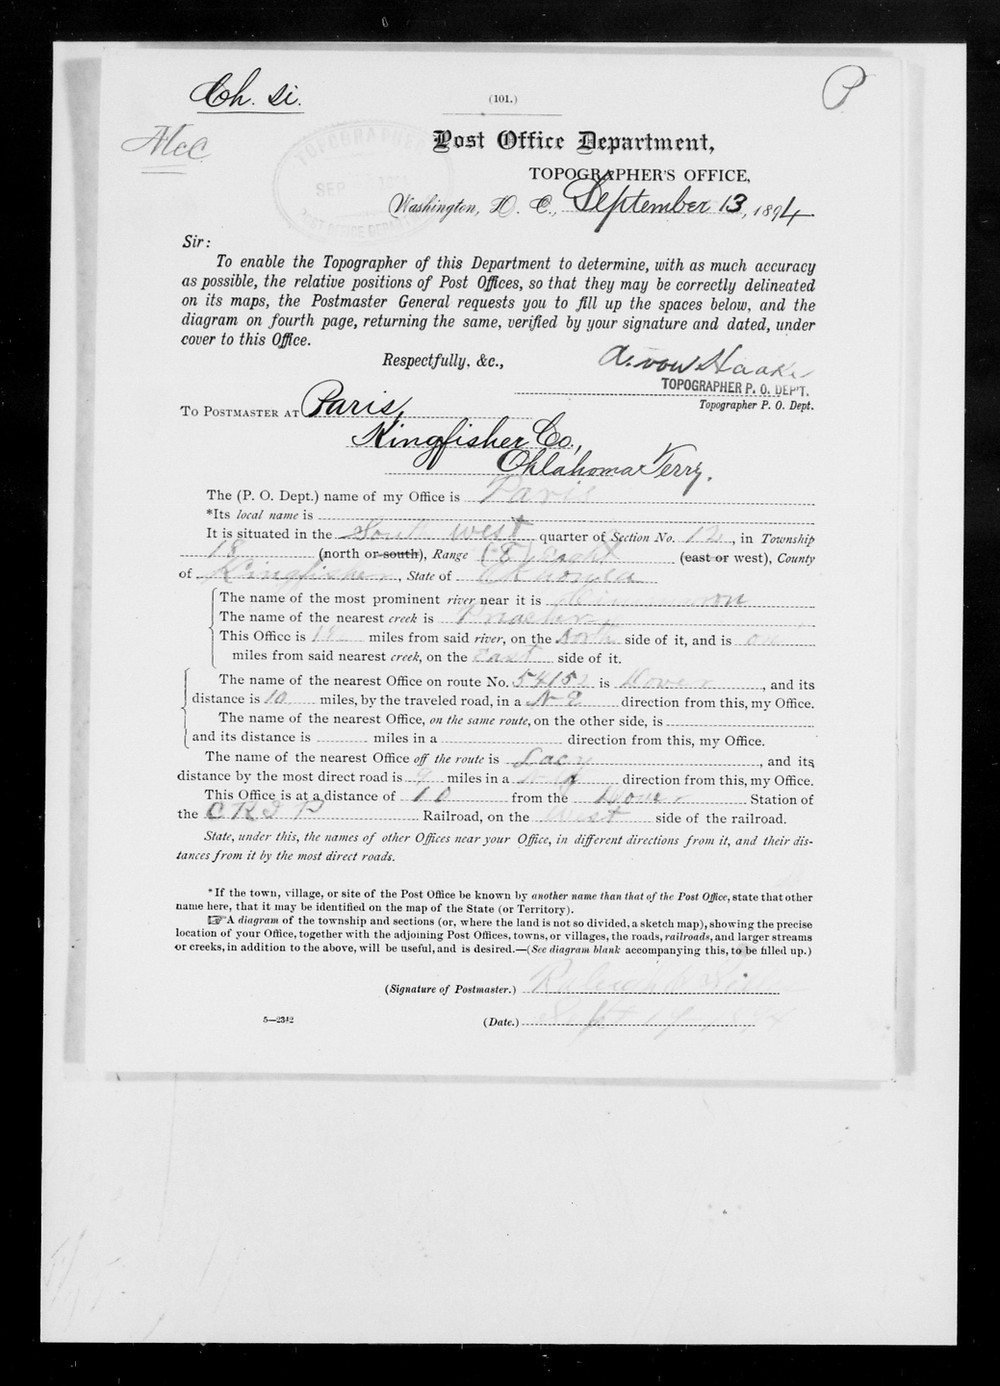 Ch. Si.
(101.)
P
McC
Post Office Department,
TOPOGRAPHER'S OFFICE,
TOPOGRAPHER
SEP
POST OFFICE DEPARTMENT
Washington, D. C., September 13, 1894
Sir:
To enable the Topographer of this Department to determine, with as much accuracy
as possible, the relative positions of Post Offices, so that they may be correctly delineated
on its maps, the Postmaster General requests you to fill up the spaces below, and the
diagram on fourth page, returning the same, verified by your signature and dated, under
cover to this Office.
Respectfully, &c.,
A. von Haake
TOPOGRAPHER P. O. DEP'T.
Topographer P. O. Dept.
To Postmaster at Paris,
Kingfisher Co,
Oklahoma Terry.
The (P. O. Dept.) name of my Office is Paris
*Its local name is
It is situated in the South west quarter of Section No. 12, in Township
18 (north or south), Range (8) eight (east or west), County
of Kingfisher, State of Oklahoma
The name of the most prominent river near it is Cimmaron
The name of the nearest creek is
This Office is miles from said river, on the North side of it, and is on
miles from said nearest creek, on the East side of it.
The name of the nearest Office on route No. 54152 is Dover, and its
distance is 10 miles, by the traveled road, in a N E direction from this, my Office.
The name of the nearest Office, on the same route, on the other side, is
and its distance is miles in a direction from this, my Office.
The name of the nearest Office off the route is Lacy, and its
distance by the most direct road is 9 miles in a direction from this, my Office.
This Office is at a distance of 10 from the Dover Station of
the C R I P Railroad, on the West side of the railroad.
State, under this, the names of other Offices near your Office, in different directions from it, and their dis-
tances from it by the most direct roads.
*If the town, village, or site of the Post Office be known by another name than that of the Post Office, state that other
name here, that it may be identified on the map of the State (or Territory).
☞A diagram of the township and sections (or, where the land is not so divided, a sketch map), showing the precise
location of your Office, together with the adjoining Post Offices, towns, or villages, the roads, railroads, and larger streams
or creeks, in addition to the above, will be useful, and is desired.—(See diagram blank accompanying this, to be filled up.)
(Signature of Postmaster.) Raleigh
5—2342
(Date.) Sept 19 1894